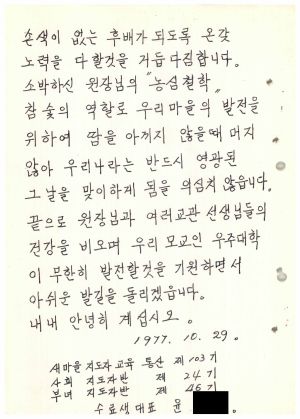 손색이 없는 후배가 되도록 온갖
노력을 다 할것을 거듭 다짐합니다.
소박하신 원장님의 "농심철학"
참 숯의 역할로 우리마을의 발전을
위하여 땀을 아끼지 않을때 머지
않아 우리나라는 반드시 영광된
그 날을 맞이하게 됨을 의심치 않읍니다.
끝으로 원장님과 여러교관 선생님들의
건강을 비오며 우리 모교인 우주대학
이 무한히 발전할것을 기원하면서
아쉬운 발길을 돌리겠읍니다.
내내 안녕히 계십시오.
1977. 10. 29.
새마을 지도자 교육 통산 제 103 기
사회 지도자반 제 24 기
부녀 지도자반 제 46 기
수료생 대표 윤